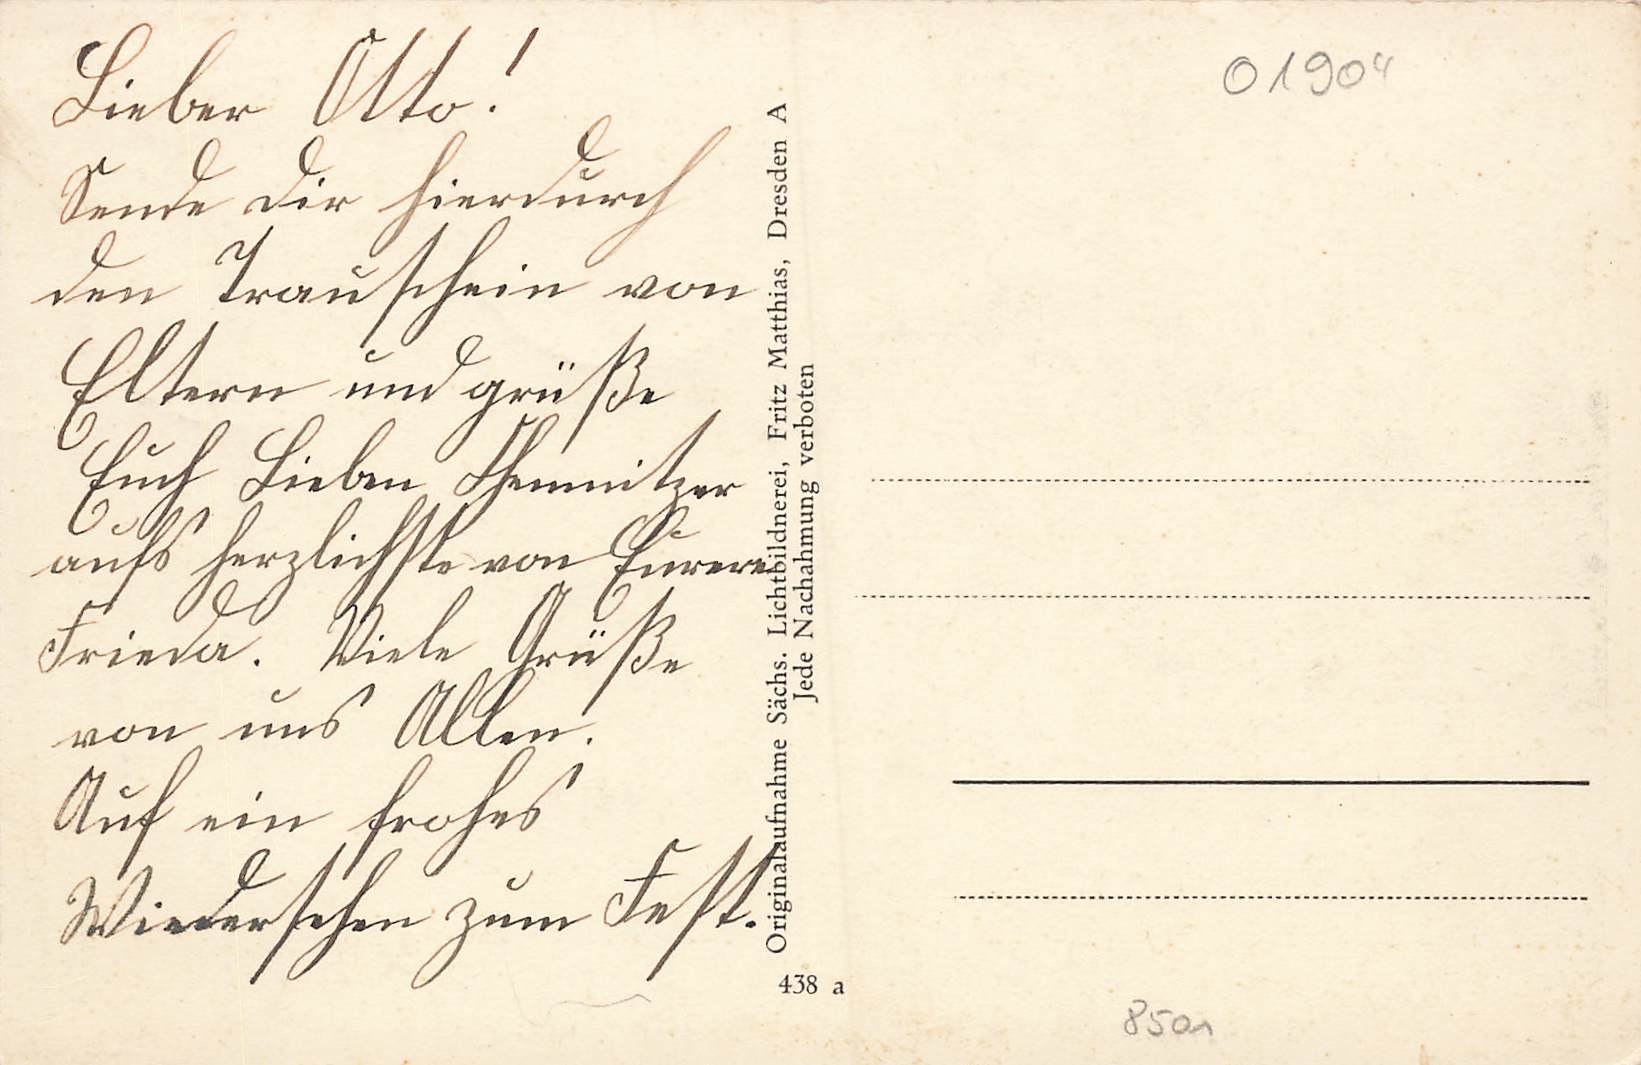 Lieber Otto!
Sende Dir hierdurch
den Trauschein von
Eltern und grüße
Euch Lieben Chemnitzer
aufs herzlichste von Eurer
Frieda. Viele Grüße
von uns Allen.
Auf ein frohes
Wiedersehen zum Fest.
Originalaufnahme Sächs. Lichtbildnerei, Fritz Matthias, Dresden A
Jede Nachahmung verboten
438 a
01904
8501